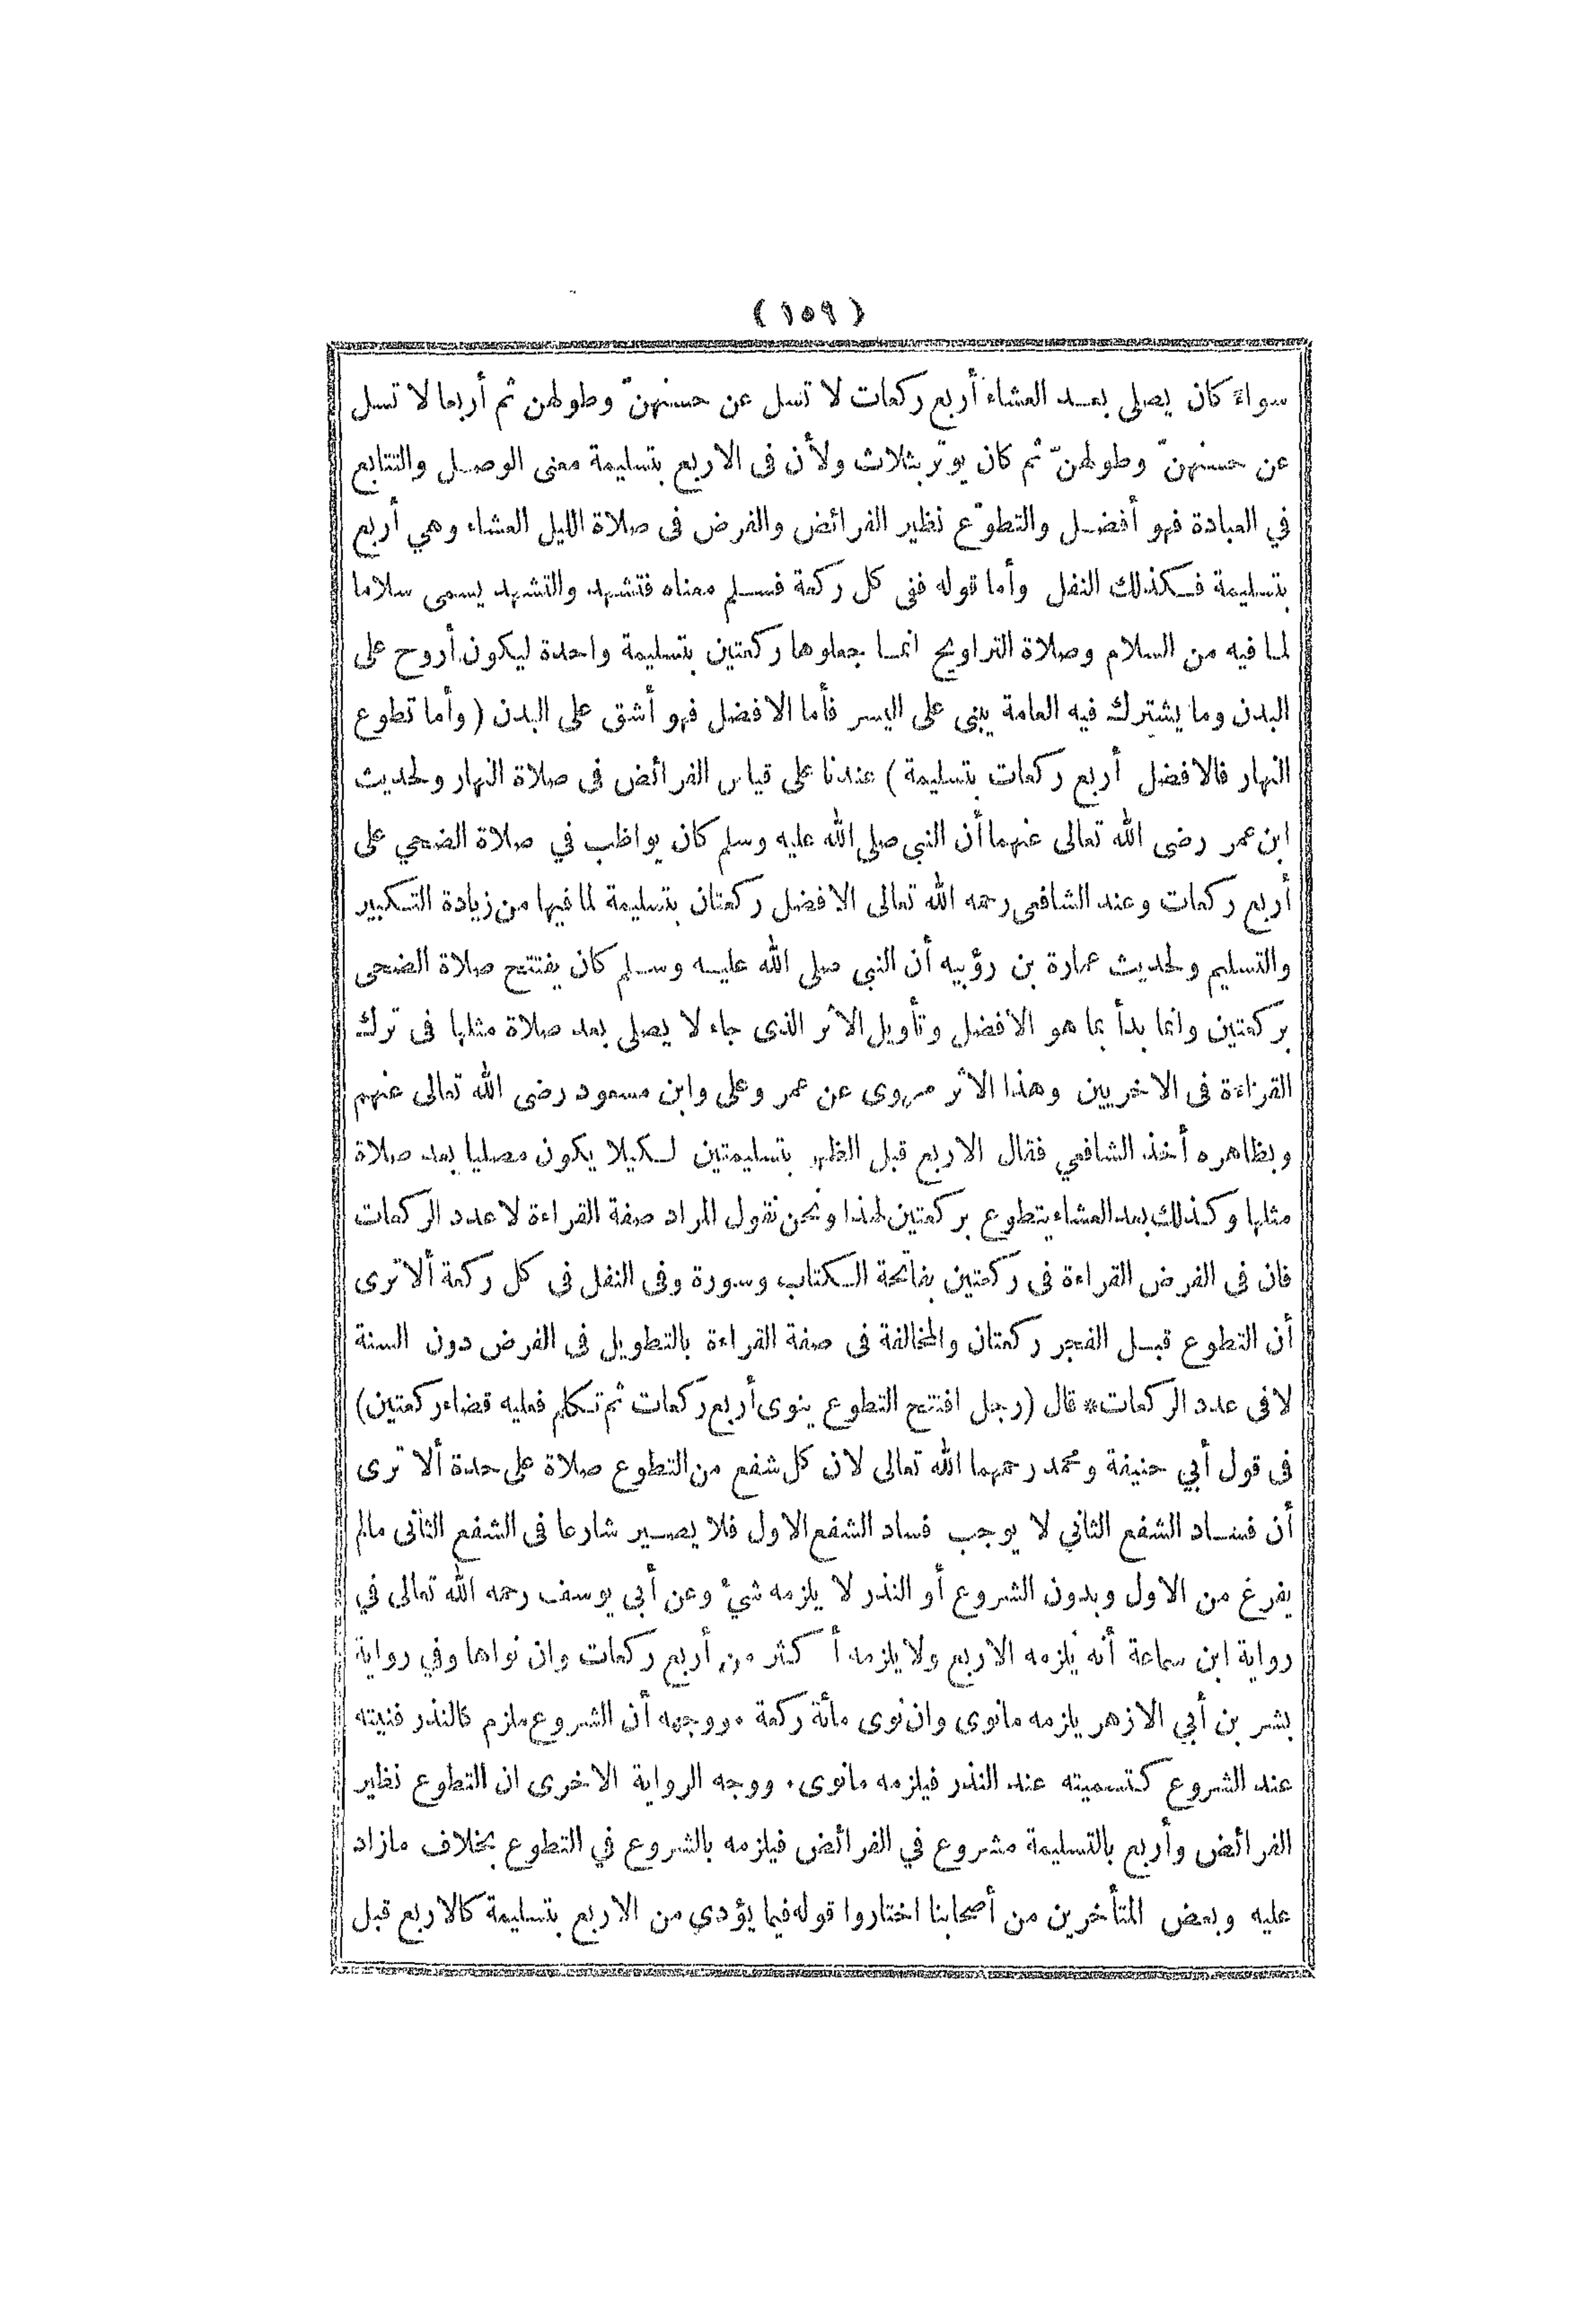 ( ١٥٩ )
سواءً كان يصلى بعد العشاء أربع ركعات لا تسل عن حسنهنّ وطولهن ثم أربعا لا تسل
عن حسنهنّ وطولهنّ ثم كان يوتر بثلاث ولأن فى الاربع بتسليمة معنى الوصل والتتابع
في العبادة فهو أفضل والتطوّع نظير الفرائض والفرض فى صلاة الليل العشاء وهي أربع
بتسليمة فكذلك النفل وأما قوله ففى كل ركعة فسلم معناه فتشهد والتشهد يسمى سلاما
لما فيه من السلام وصلاة التراويح انما جعلوها ركعتين بتسليمة واحدة ليكون أروح على
البدن وما يشترك فيه العامة يبنى على اليسر فأما الافضل فهو أشق على البدن (وأما تطوع
النهار فالافضل أربع ركعات بتسليمة) عندنا على قياس الفرائض فى صلاة النهار ولحديث
ابن عمر رضى الله تعالى عنهما أن النبى صلى الله عليه وسلم كان يواظب في صلاة الضحي على
أربع ركعات وعند الشافعى رحمه الله تعالى الافضل ركعتان بتسليمة لما فيها من زيادة التكبير
والتسليم ولحديث عمارة بن رؤيبه أن النبي صلى الله عليه وسلم كان يفتتح صلاة الضحى
بركعتين وانما بدأ بما هو الافضل وتأويل الاثر الذى جاء لا يصلى بعد صلاة مثلها فى ترك
القراءة فى الاخريين وهذا الاثر مروى عن عمر وعلى وابن مسعود رضى الله تعالى عنهم
وبظاهره أخذ الشافعي فقال الاربع قبل الظهر بتسليمتين لكيلا يكون مصليا بعد صلاة
مثلها وكذلك بعد العشاء يتطوع بركعتين لهذا ونحن نقول المراد صفة القراءة لا عدد الركعات
فان فى الفرض القراءة فى ركعتين بفاتحة الكتاب وسورة وفى النفل فى كل ركعة ألا ترى
أن التطوع قبل الفجر ركعتان والمخالفة فى صفة القراءة بالتطويل فى الفرض دون السنة
لا فى عدد الركعات * قال (رجل افتتح التطوع ينوى أربع ركعات ثم تكلم فعليه قضاء ركعتين)
فى قول أبي حنيفة ومحمد رحمهما الله تعالى لان كل شفع من التطوع صلاة على حدة ألا ترى
أن فساد الشفع الثاني لا يوجب فساد الشفع الاول فلا يصير شارعا فى الشفع الثانى مالم
يفرغ من الاول وبدون الشروع أو النذر لا يلزمه شيء وعن أبى يوسف رحمه الله تعالى في
رواية ابن سماعة أنه يلزمه الاربع ولا يلزمه أكثر من أربع ركعات وان نواها وفي رواية
بشر بن أبي الازهر يلزمه مانوى وان نوى مائة ركعة . ووجهه أن الشروع ملزم كالنذر فنيته
عند الشروع كتسميته عند النذر فيلزمه مانوى . ووجه الرواية الاخرى ان التطوع نظير
الفرائض وأربع بالتسليمة مشروع في الفرائض فيلزمه بالشروع في التطوع بخلاف مازاد
عليه وبعض المتأخرين من أصحابنا اختاروا قوله فيما يؤدي من الاربع بتسليمة كالاربع قبل